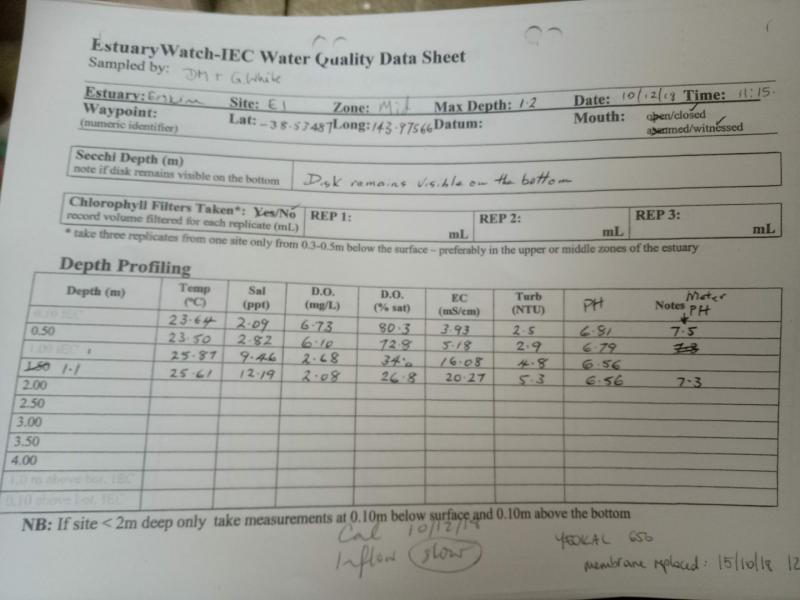 EstuaryWatch-IEC Water Quality Data Sheet
Sampled by: DM + G White
Estuary: Site: E1 Zone: Mid Max Depth: 1.2 Date: 10/12/18 Time: 11:15.
Waypoint: Lat: -38.53487 Long: 143.97566 Datum: Mouth: open/closed
(numeric identifier) assumed/witnessed
Secchi Depth (m)
note if disk remains visible on the bottom Disk remains visible on the bottom
Chlorophyll Filters Taken*: Yes/No REP 1: REP 2: REP 3:
record volume filtered for each replicate (mL) mL mL mL
* take three replicates from one site only from 0.3-0.5m below the surface – preferably in the upper or middle zones of the estuary
Depth Profiling
Depth (m) Temp (°C) Sal (ppt) D.O. (mg/L) D.O. (% sat) EC (mS/cm) Turb (NTU) PH Notes Meter PH
0.10 IEC 23.64 2.09 6.73 80.3 3.93 2.5 6.81 7.5
0.50 23.50 2.82 6.10 72.8 5.18 2.9 6.79 7.3
1.00 IEC 25.87 9.46 2.68 34.0 16.08 4.8 6.56
1.50 1.1 25.61 12.19 2.08 26.8 20.27 5.3 6.56 7.3
2.00
2.50
3.00
3.50
4.00
1.0 m above bot. IEC
0.10 above bot. IEC
NB: If site < 2m deep only take measurements at 0.10m below surface and 0.10m above the bottom
Cal 10/12/18
Inflow slow
YEOKAL 650
membrane replaced: 15/10/18 12